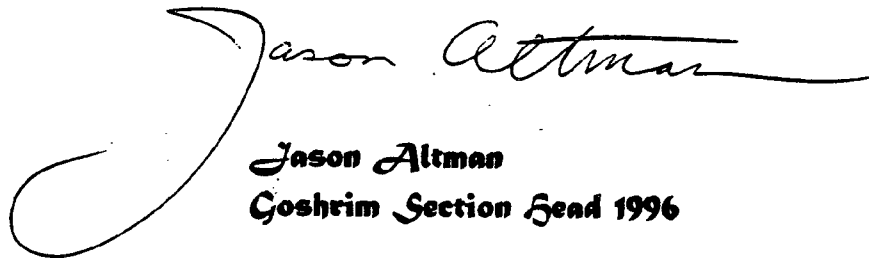 Jason Altman
Jason Altman
Goshrim Section Head 1996